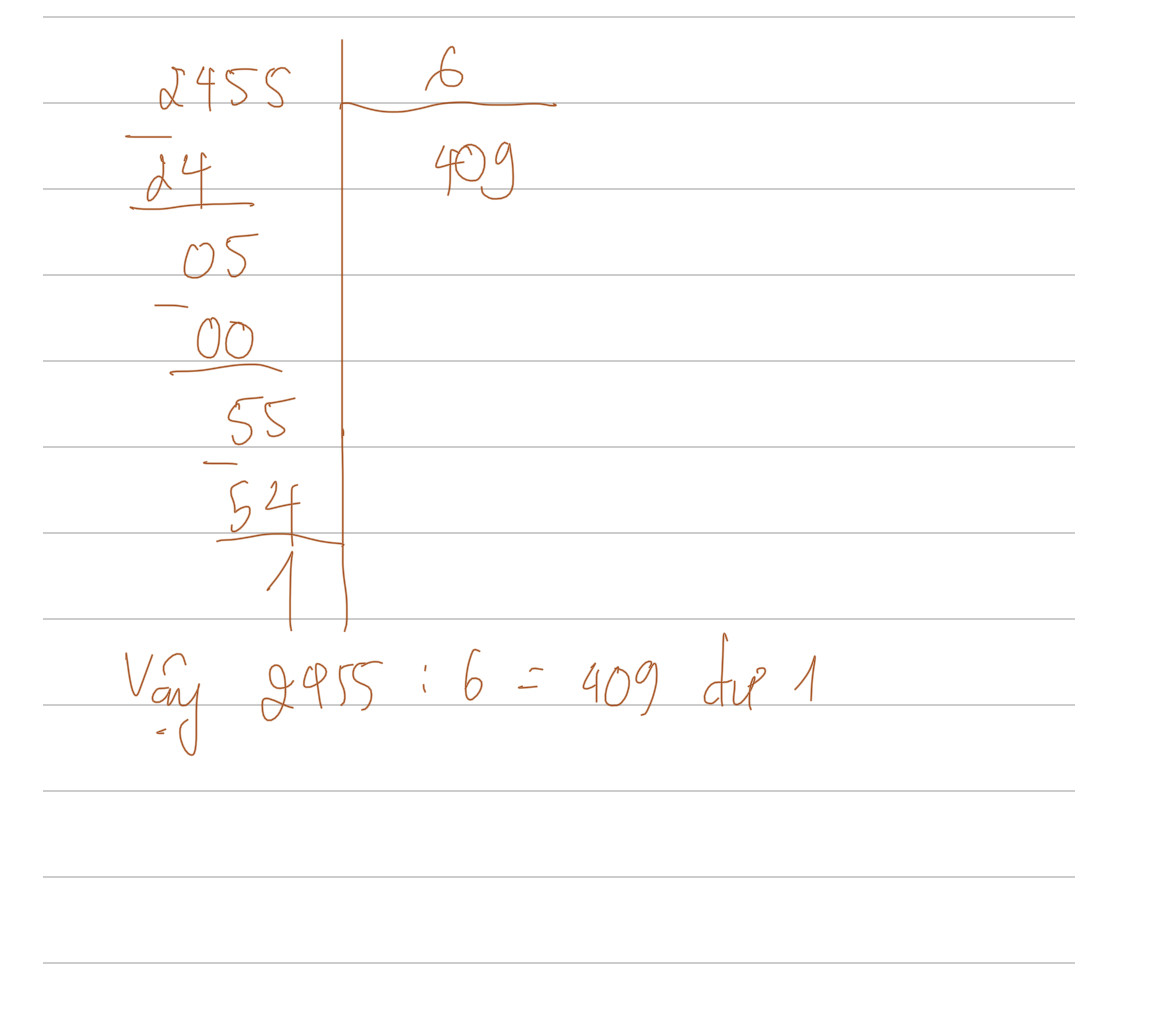 2455 6
- 409
24
05
-
00
55
-
54
1
Vậy 2455 : 6 = 409 dư 1